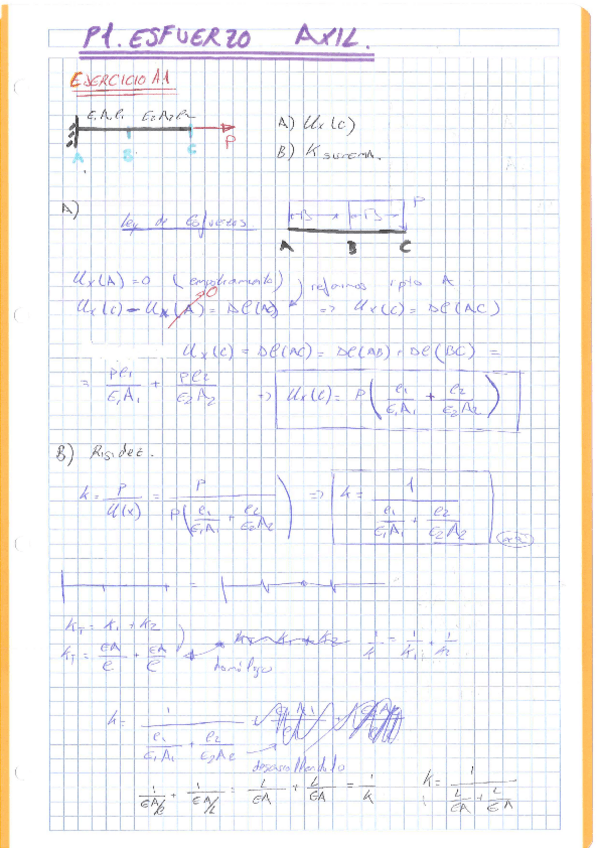 P1. ESFUERZO AXIL.
EJERCICIO A1
E₁A₁ℓ₁ E₂A₂ℓ₂
A B C P
A) Uₓ(C)
B) K SISTEMA.
A)
Ley de Esfuerzos
P
A B C
Uₓ(A) = 0 (empotramiento)
Uₓ(C) - Uₓ(A) = Dℓ(AC) => Uₓ(C) = Dℓ(AC)
0
Uₓ(C) = Dℓ(AC) = Dℓ(AB) + Dℓ(BC) =
= Pℓ₁/E₁A₁ + Pℓ₂/E₂A₂ => Uₓ(C) = P(ℓ₁/E₁A₁ + ℓ₂/E₂A₂)
B) Rigidez.
K = P/U(x) = P/P(ℓ₁/E₁A₁ + ℓ₂/E₂A₂) => K = 1/(ℓ₁/E₁A₁ + ℓ₂/E₂A₂)
=
K_T = K₁ + K₂
K_T = EA/ℓ + EA/ℓ
1/K = 1/K₁ + 1/K₂
K = 1/(ℓ₁/E₁A₁ + ℓ₂/E₂A₂)
1/(EA/L) + 1/(EA/L) = L/EA + L/EA = 1/K
K = 1/(L/EA + L/EA)